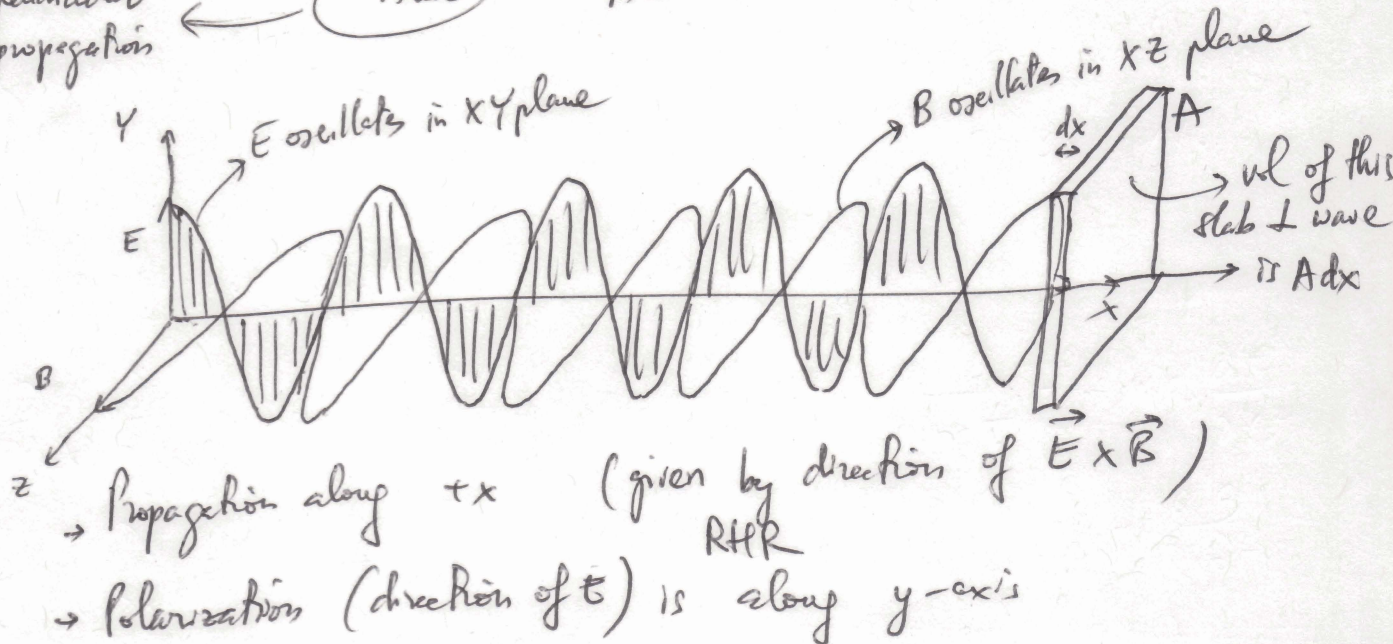 propagation
Y
E oscillates in XY plane
B oscillates in XZ plane
E
dx
A
vol of this
slab ⊥ wave
is A dx
X
B
Z
→ Propagation along +x (given by direction of E⃗ x B⃗)
RHR
→ Polarization (direction of E) is along y-axis